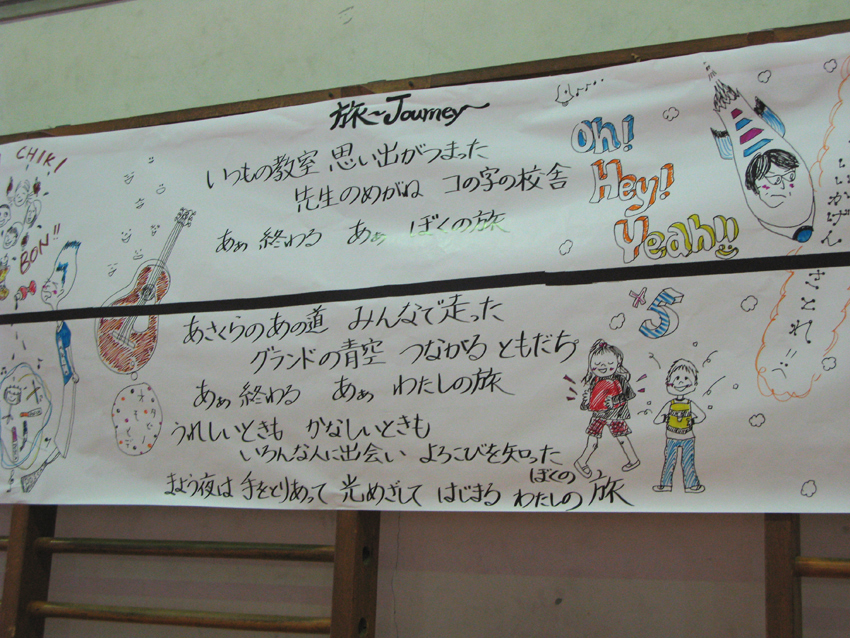 旅〜Journey〜
CHIK!
BON!!
いつもの教室 思い出がつまった
先生のめがね コの字の校舎
あぁ 終わる あぁ ぼくの旅
Oh!
Hey!
Yeah!!
いいかげん
さとれ
あさくらのあの道 みんなで走った
グランドの青空 つながる ともだち
あぁ 終わる あぁ わたしの旅
×5
うれしいときも かなしいときも
いろんな人に出会い よろこびを知った
まよう夜は 手をとりあって 光めざして はじまる ぼくの わたしの 旅